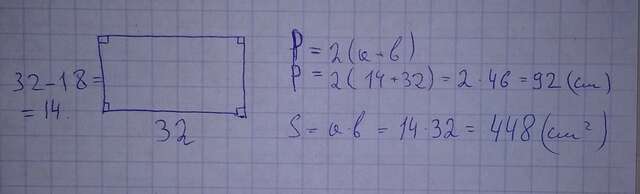 32-18=
=14.
32
P = 2(a+b)
P = 2(14+32) = 2·46 = 92 (cm)
S = a·b = 14·32 = 448 (cm²)